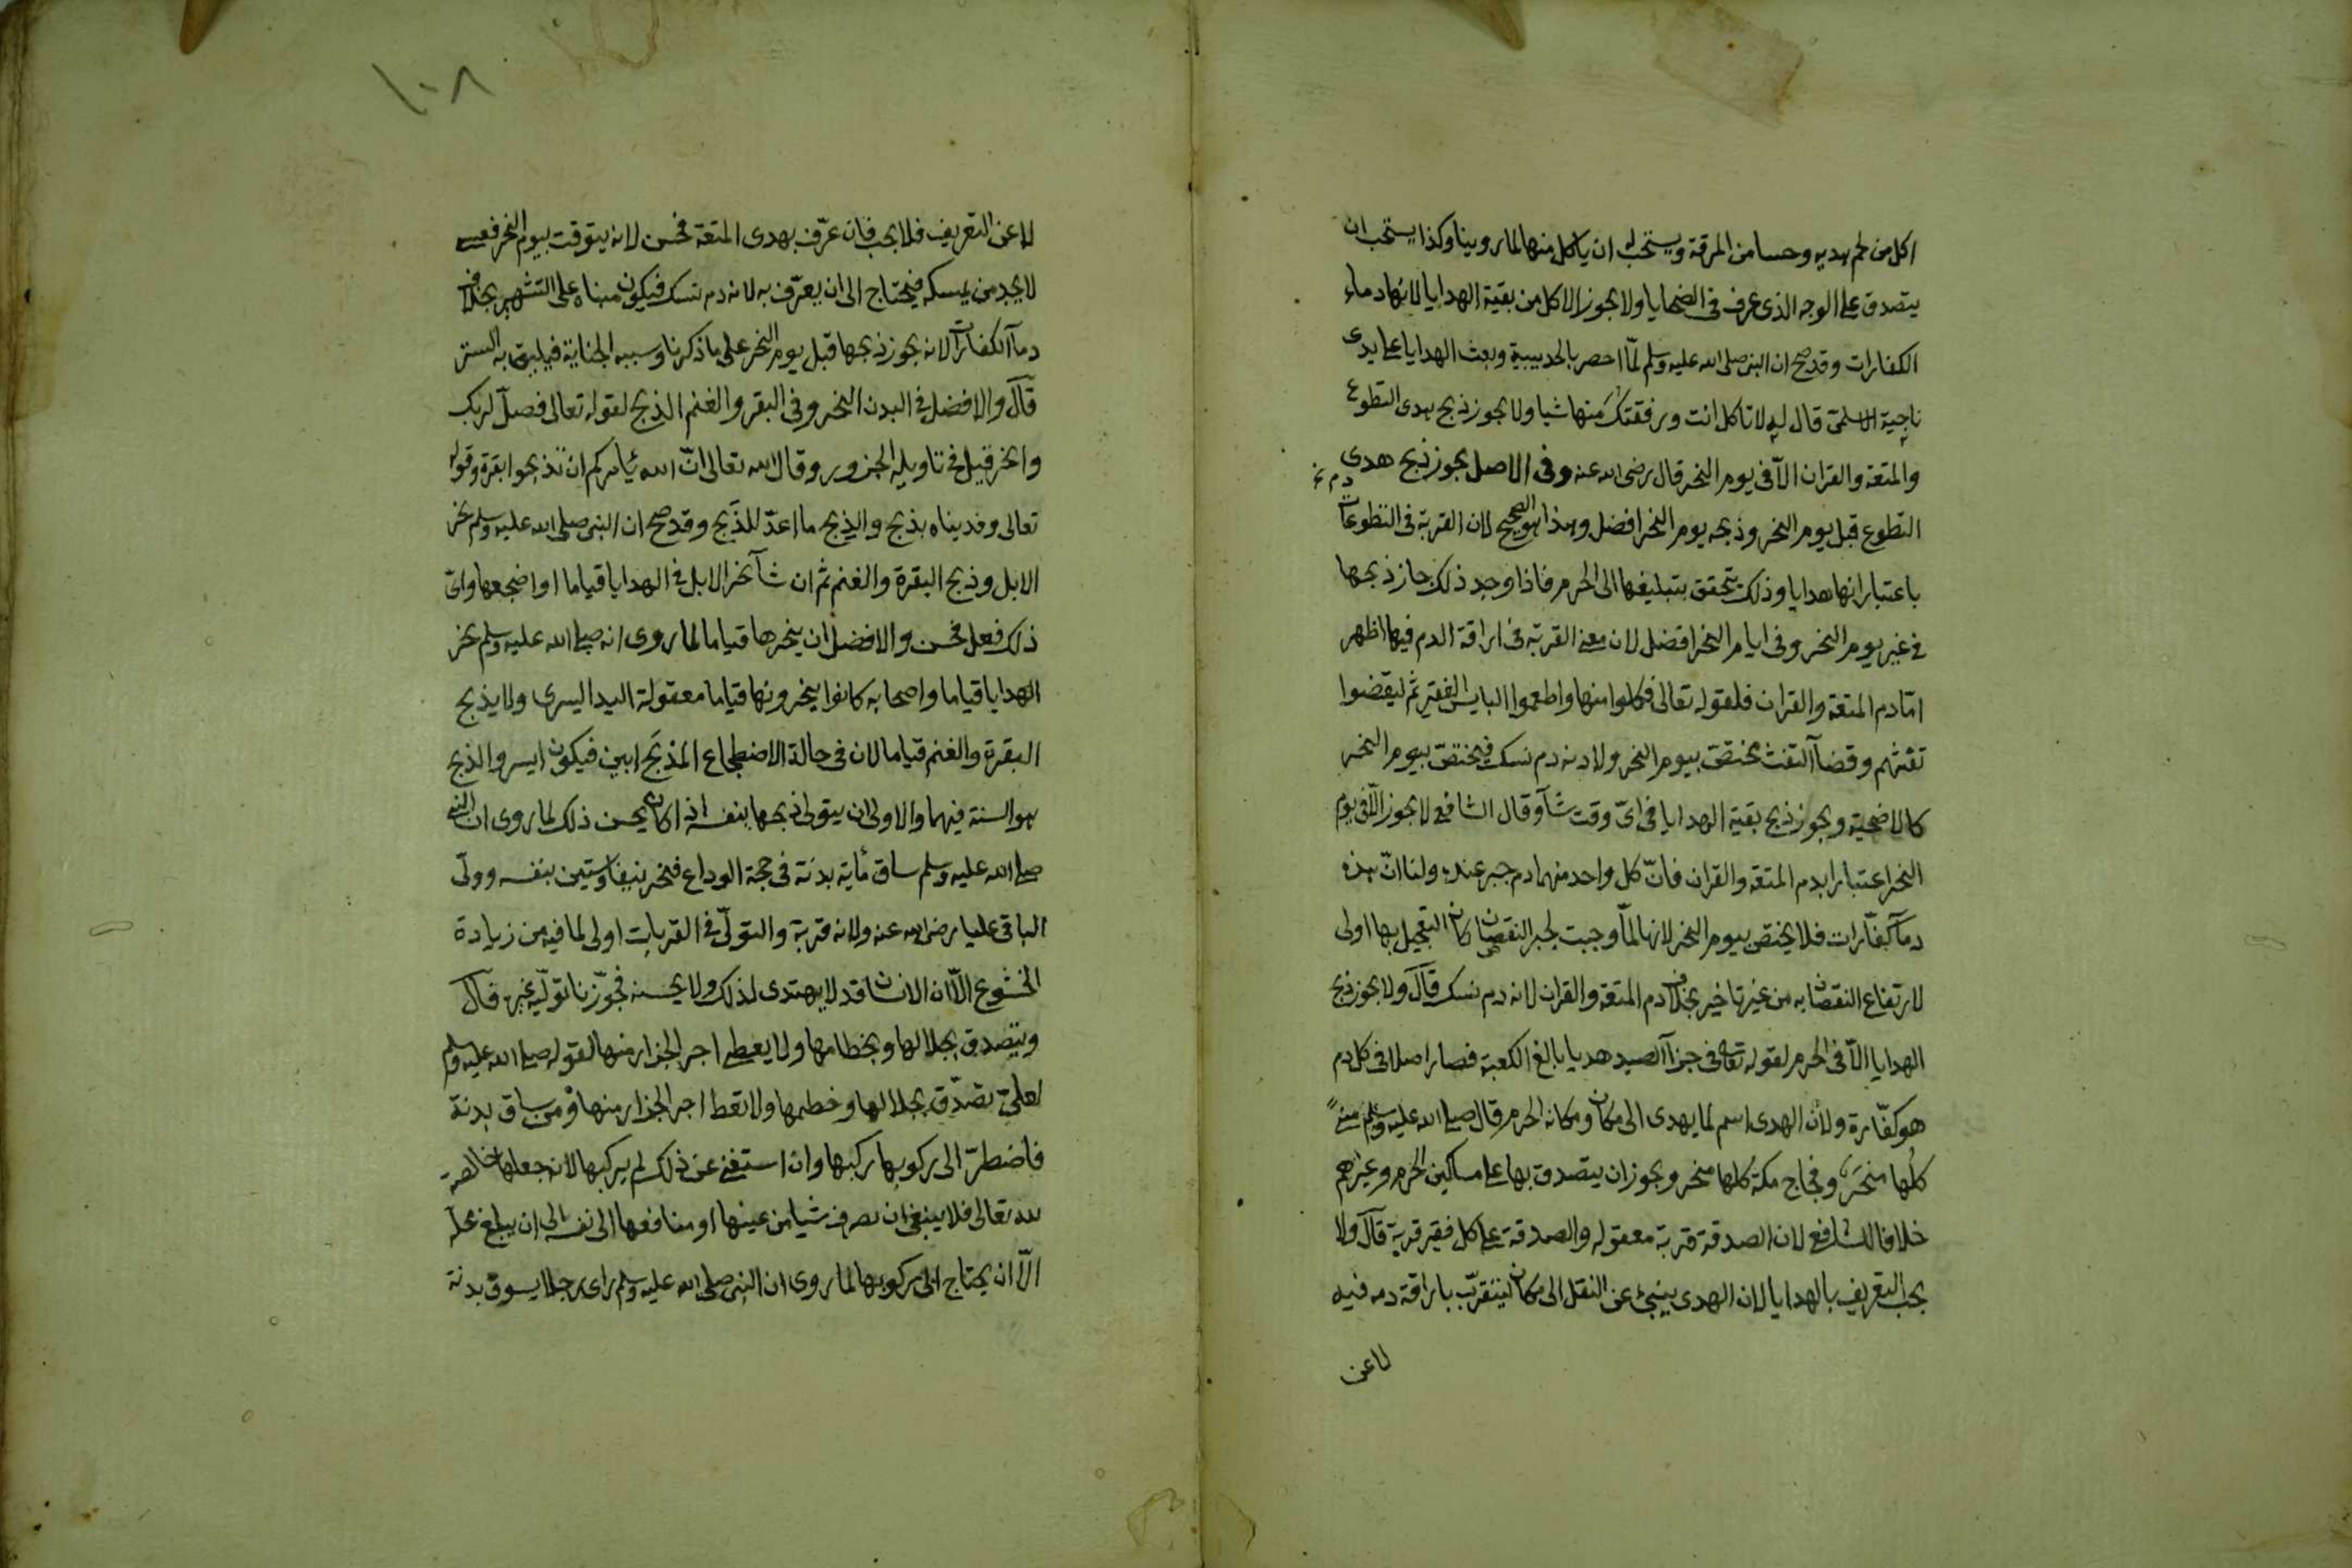 اكل من لحم هديه وحسا من المرقة ويستحب له ان ياكل منها لما روينا وكذا يستحب ان
يتصدق على الوجه الذى عرف فى الضحايا ولا يجوز الاكل من بقية الهدايا لانها دماء
الكفارات وقد صح ان النبى صلى الله عليه وسلم لمّا احصر بالحديبية وبعث الهدايا على يدى
ناجية الاسلمى قال له لا تاكل انت ورفقتك منها شيا ولا يجوز ذبح هدى التطوع
والمتعة والقران الّا فى يوم النحر قال رضى الله عنه وفى الاصل يجوز ذبح هدى
دم
التطوع قبل يوم النحر وذبحه يوم النحر افضل وهذا هو الصحيح لان القربة فى التطوعات
باعتبار انها هدايا وذلك يتحقق بتبليغها الى الحرم فاذا وجد ذلك جاز ذبحها
فى غير يوم النحر وفى ايام النحر افضل لان معنى القربة فى اراقة الدم فيها اظهر
امّا دم المتعة والقران فلقوله تعالى فكلوا منها واطعموا البايس الفقير ثم ليقضوا
تفثهم وقضآ التفث يختصّ بيوم النحر ولانه دم نسك فيختصّ بيوم النحر
كالاضحية ويجوز ذبح بقية الهدايا فى اىّ وقت شآ وقال الشافعى لا يجوز الّا فى يوم
النحر اعتبارا بدم المتعة والقران فانّ كل واحد منهما دم جبر عنده ولنا انّ هذه
دمآ كفّارات فلا يختص بيوم النحر لانها لمّا وجبت لجبر النقصان كان التعجيل بها اولى
لارتفاع النقصان به من غير تاخير بخلاف دم المتعة والقران لانه دم نسك قآل ولا يجوز ذبح
الهدايا الّا فى الحرم لقوله تعالى فى جزآ الصيد هديا بالغ الكعبة فصار اصلا فى كل دم
هو كفّارة ولان الهدى اسم لما يهدى الى مكان ومكانه الحرم قال صلى الله عليه وسلم منى
كلُّها منحَر وفجاج مكة كلها منحر ويجوز ان يتصدق بها على مساكين الحرم وغيرهم
خلافا للشافعى لان الصدقة قربة معقولة والصدقة على كل فقير قربة قآل ولا
يجب التعريف بالهدايا لان الهدى ينبئ عن النقل الى مكان ليتقرّب باراقة دمه فيه
لا عن
١٠٨
لا عن التعريف فلا يجب فان عرّف بهدى المتعة فحسن لانه يتوقت بيوم النحر فعسى
لا يجد من يمسكه فيحتاج الى ان يعرّف به لانه دم نسك فيكون مبناه على التشهير بخلاف
دمآ الكفارات لانه يجوز ذبحها قبل يوم النحر على ما ذكرنا وسببه الجناية فيليق به الستر
قآل والافضل فى البدن النحر وفى البقر والغنم الذبح لقوله تعالى فصلّ لربك
وانحر قيل فى تاويله الجزور وقال الله تعالى انّ الله يامركم ان تذبحوا بقرة وقوله
تعالى وفديناه بذبح والذبح ما اعدّ للذَبح وقد صح ان النبى صلى الله عليه وسلم نحر
الابل وذبح البقرة والغنم ثم ان شآ نحر الابل فى الهدايا قياما او اضجعها واىّ
ذلك فعل فحسن والافضل ان ينحرها قياما لما روى انه صلى الله عليه وسلم نحر
الهدايا قياما واصحابه كانوا ينحرونها قياما معقولة اليد اليسرى ولا يذبح
البقرة والغنم قياما لان فى حالة الاضطجاع المذبَح ابين فيكون ايسر والذبح
هو السنة فيهما والاولى ان يتولى ذبحها بنفسه اذا كان يحسن ذلك لما روى ان النبى
صلى الله عليه وسلم ساق مأية بدنة فى حجة الوداع فنحر نيفا وستين بنفسه وولّى
الباقى عليا رضى الله عنه ولانه قربة والتولّى فى القربات اولى لما فيه من زيادة
الخشوع الّا ان الانسان قد لا يهتدى لذلك ولا يحسنه فجوّزنا توليّه غيره قآل
ويتصدق بجلالها وبخطامها ولا يعطى اجر الجزار منها لقوله صلى الله عليه وسلم
لعلىّ تصدّق بجلالها وخطمها ولا تعط اجر الجزار منها ومن ساق بدنة
فاضطرّ الى ركوبها ركبها وان استغنى عن ذلك لم يركبها لانه جعلها خالصة
لله تعالى فلا ينبغى ان يصرف شيا من عينها او منافعها الى نفسه الى ان يبلغ محلّه
الّا ان يحتاج الى ركوبها لما روى ان النبى صلى الله عليه وسلم راى رجلا يسوق بدنة